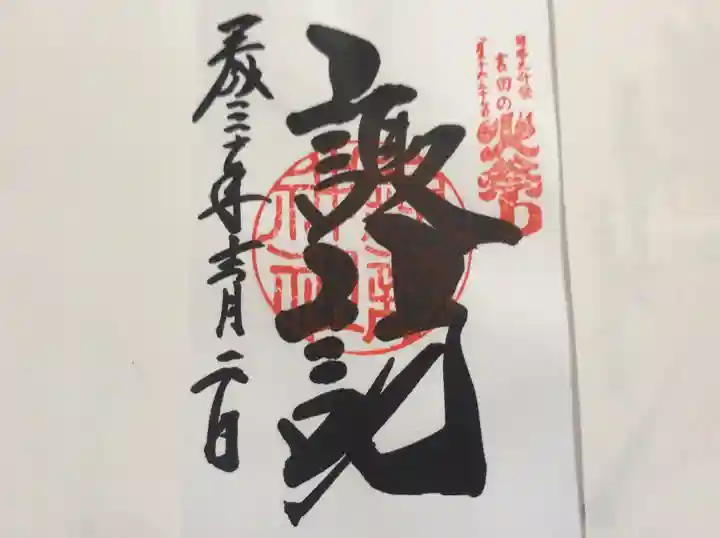 吉田の火祭り
諏訪
神社
平成三十年十一月二日